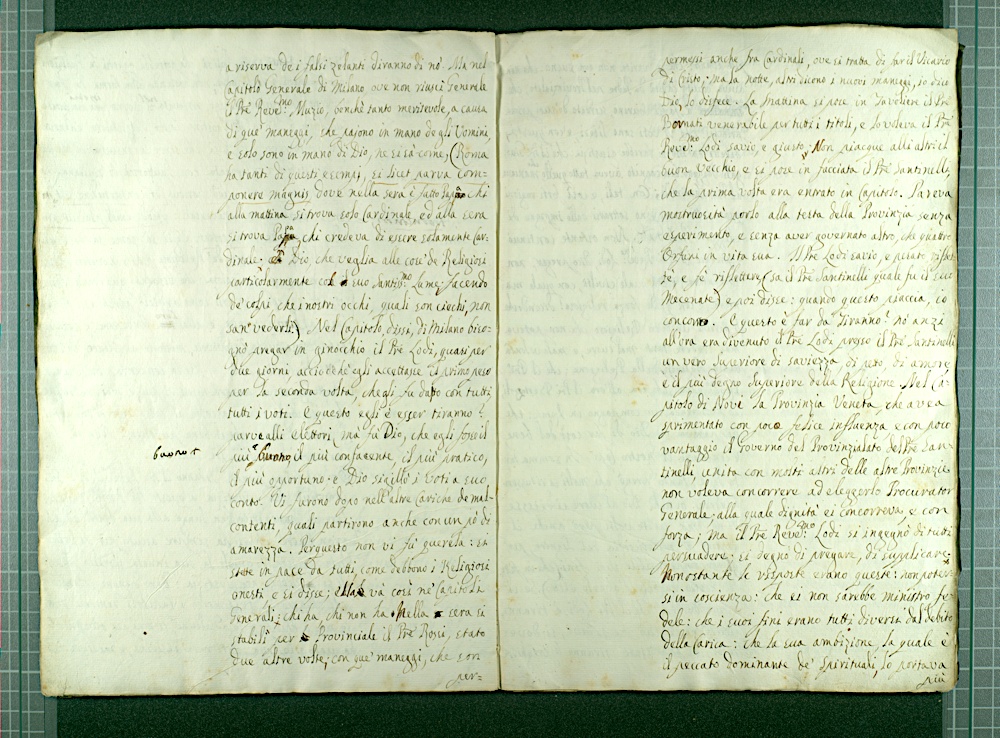 a riserva de i falsi zelanti diranno di nò. Ma nel
Capitolo Generale di Milano, ove non riuscì Generale
il Prè Reve:mo Muzio, bonchè tanto meritevole, a causa
di que' maneggi, che pajono in mano de gli Uomini,
e solo sono in mano di Dio, ne si sà come, (Roma
fa tanti di questi esempj, si licet parva com-
ponere magnis, dove nella sera è fatto Papa chi
alla mattina si trova solo Cardinale, ed alla sera
si trova Papa, chi credeva di essere solamente Car-
dinale; Dio, che veglia alle cose de Religiosi
particolarmente col suo Santis:mo Lume; facendo
de' colpi che i nostri occhi, quali son ciechi, non
san vederli). Nel Capitolo dissi, di Milano biso-
gnò pregar in ginocchio il Prè Lodi, quasi per
due giorni acciochè egli accettasse il primo peso
per la seconda volta, che gli fu dato con tutti
tutti i voti. E questo egli è esser tiranno?
parve alli elettori, ma fù Dio, che egli fosse il
più buono, il più confacente, il più pratico,
buono
il più opportuno: e Dio sigillò i voti a suo
conto. Vi furono dopo nell'altre Cariche de mal-
contenti, quali partirono anche con un pò di
amarezza. Per questo non vi fù querela: si
stete in pace da tutti, come debbono i Religiosi
onesti e si disse; và così nè Capitoli
Generali; chi ha, chi non ha. Nella sera si
stabilì per Provinciale il Prè Rossi, stato
due altre volte; con que' maneggi, che son
per=
permessi anche fra Cardinali, ove si tratta di far il Vicario
di Cristo; ma la notte, altri dicono i nuovi maneggi, io dico
Dio, lo disfece. La mattina si pose in Tavoliere il Prè
Bornati venerabile per tutti i titoli, e lo voleva il Prè
Reve:mo Lodi savio, e giusto; Non piacque alli altri il
buon Vecchio, e si pose in facciata il Prè Santinelli,
che la prima volta era entrato in Capitolo. Pareva
mostruosità porlo alla testa della Provinzia senza
esperimento, e senza aver governato altro, che quattro
Orfani in vita sua. Il Prè Lodi savio, e pesato riflet-
tè, e fè riflettere (sa il Prè Santinelli quale fu il suo
Mecenate) e poi disse: quando questo piaccia, io
concorro. E questo è far da Tiranno? nò anzi
all'ora era divenuto il Prè Lodi presso il Prè Santinelli
un vero Superiore di saviezza, di peso, di amore
e il più degno Superiore della Religione. Nel Ca-
pitolo di Nove la Provinzia Veneta, che avea
sprimentato con poco felice influenza e con poco
vantaggio il Governo del Provincialato del Prè San-
tinelli, unita con molti altri delle altre Provinzie
non voleva concorrere ad eleggerlo Proccurator
Generale, alla quale dignità ei concorreva, e con
forza; ma il Prè Reve:mo Lodi si ingegnò di tutti
persuadere: si degnò di pregare, di supplicare.
Nonostante le risposte erano queste: non poter-
si in coscienza: che ei non sarebbe ministro fe-
dele: che i suoi fini erano tutti diversi dal debito
della Carica: che la sua ambizione, la quale è
il peccato dominante de' Spirituali, lo portava
più